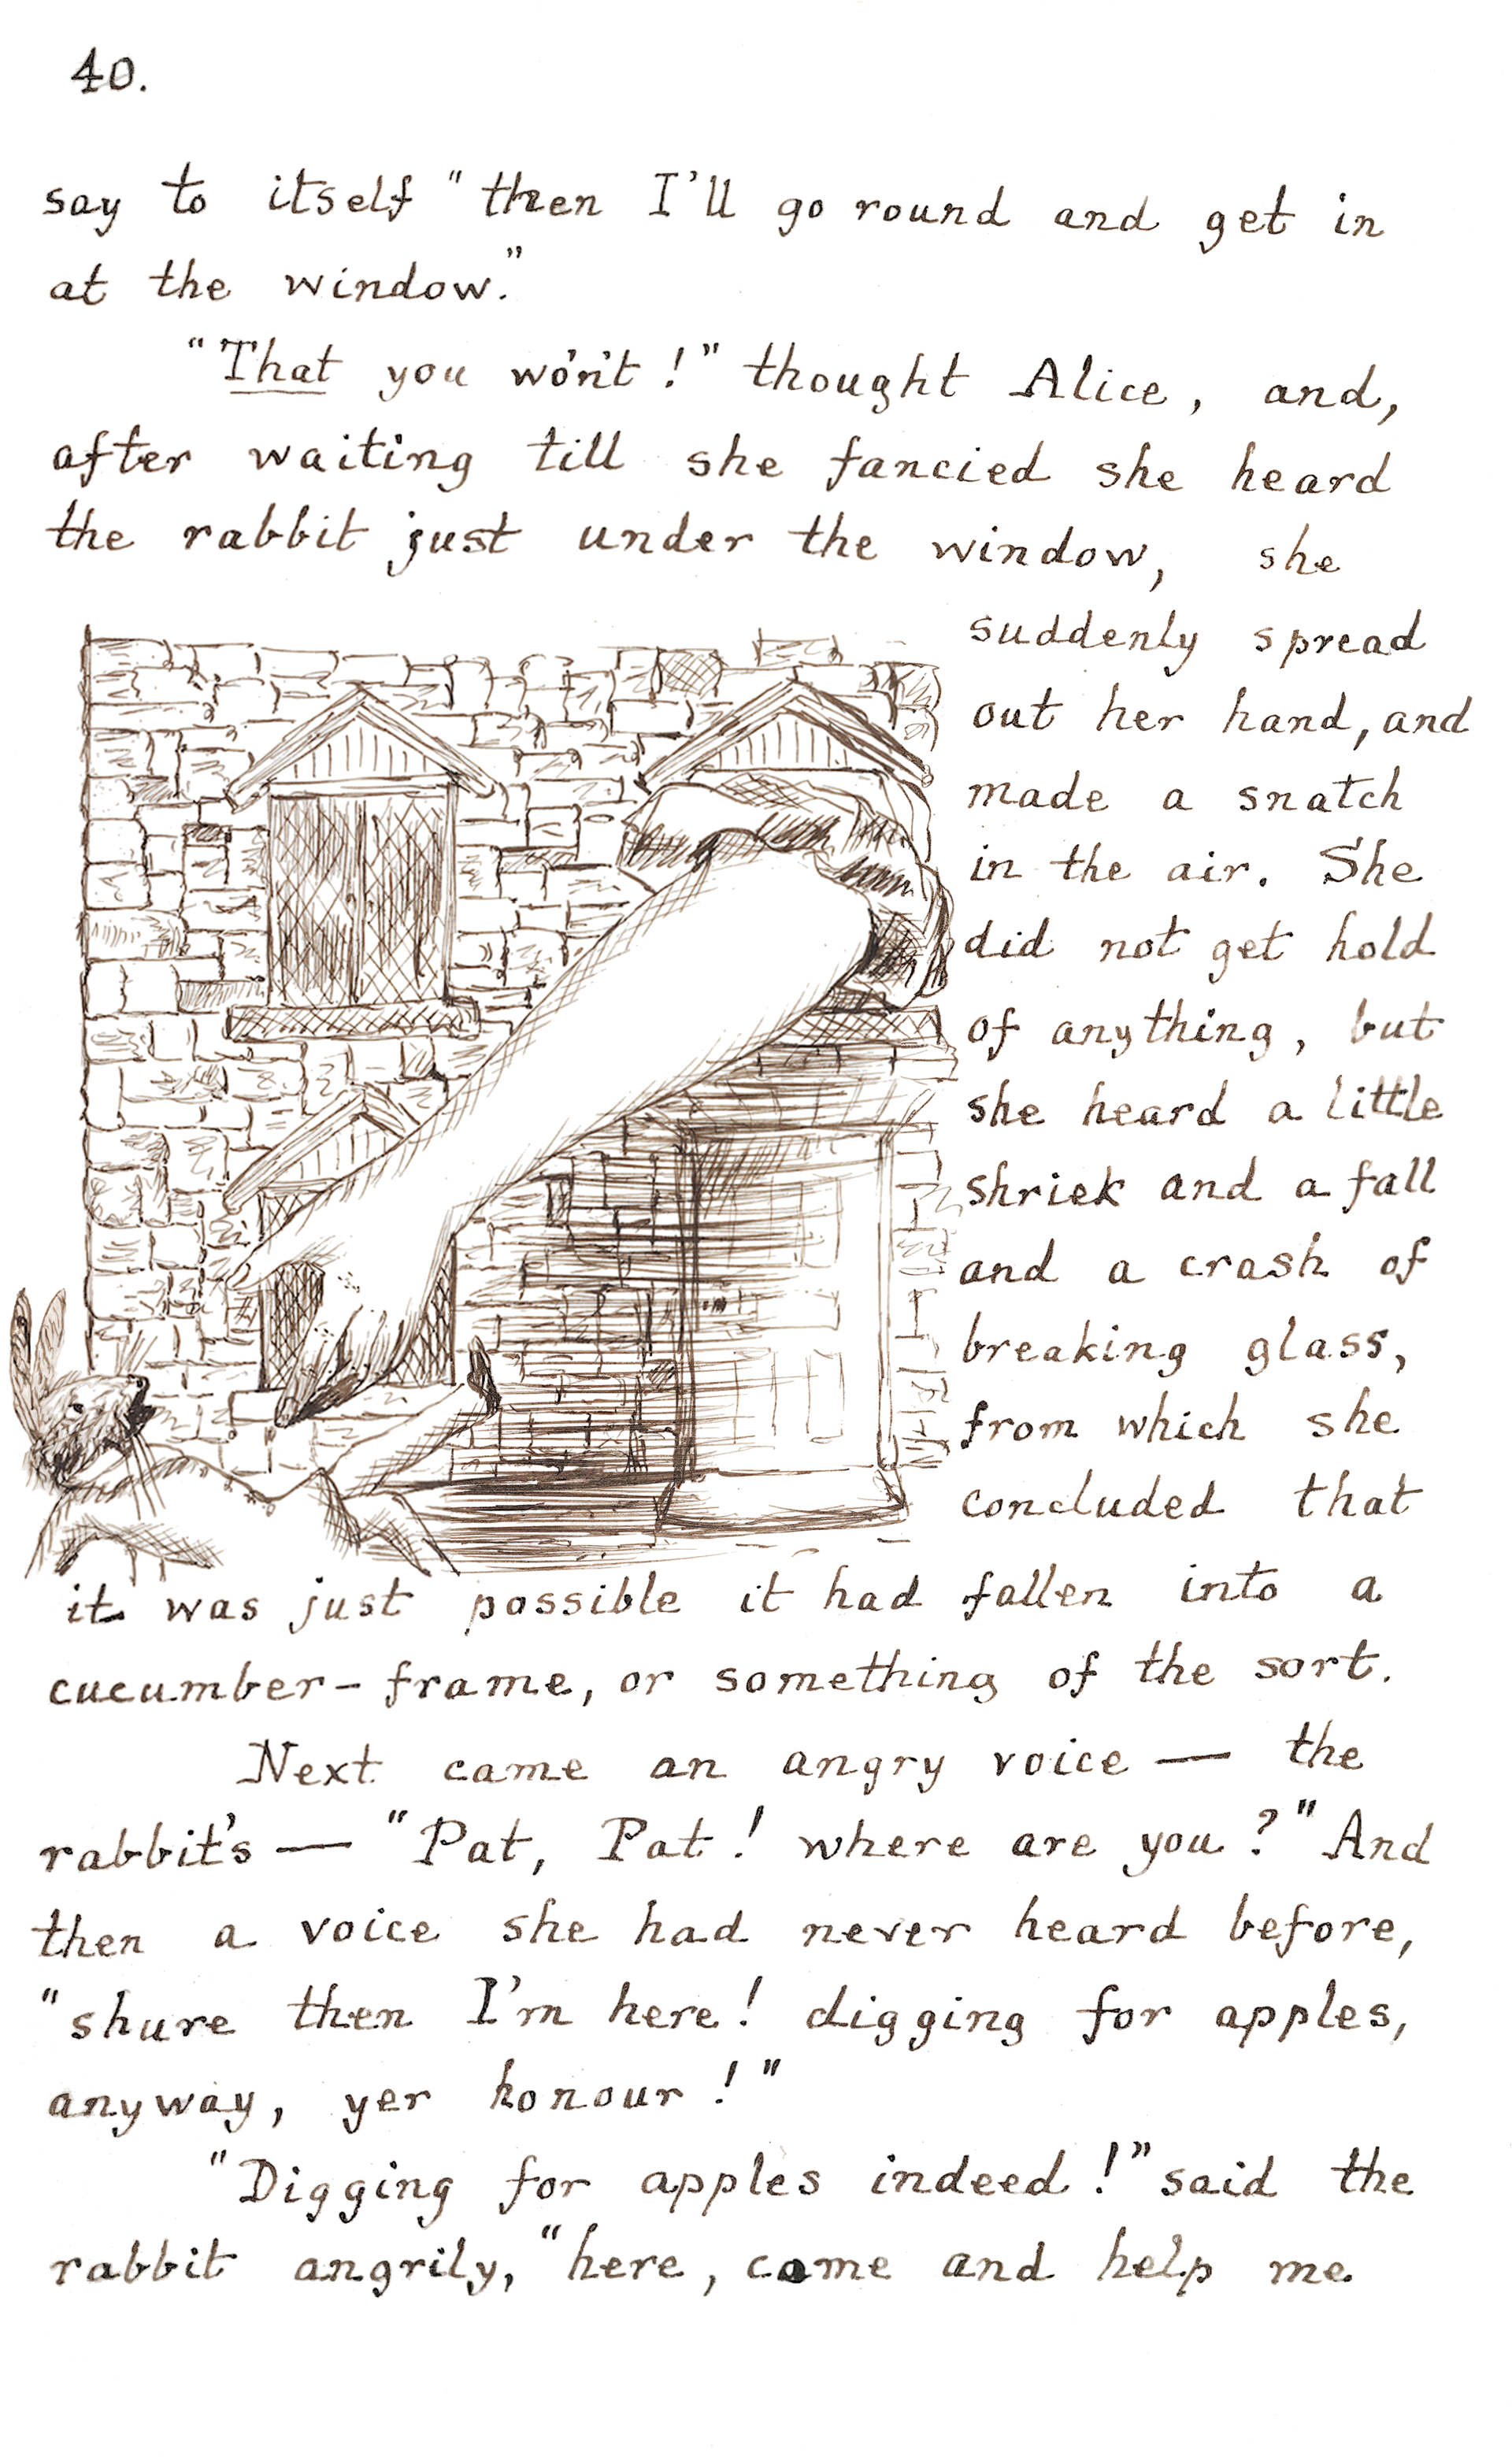 40.
say to itself "then I'll go round and get in
at the window."
"That you wo'n't!" thought Alice, and,
after waiting till she fancied she heard
the rabbit just under the window, she
suddenly spread
out her hand, and
made a snatch
in the air. She
did not get hold
of anything, but
she heard a little
shriek and a fall
and a crash of
breaking glass,
from which she
concluded that
it was just possible it had fallen into a
cucumber-frame, or something of the sort.
Next came an angry voice — the
rabbit's — "Pat, Pat! where are you?" And
then a voice she had never heard before,
"shure then I'm here! digging for apples,
anyway, yer honour!"
"Digging for apples indeed!" said the
rabbit angrily, "here, come and help me